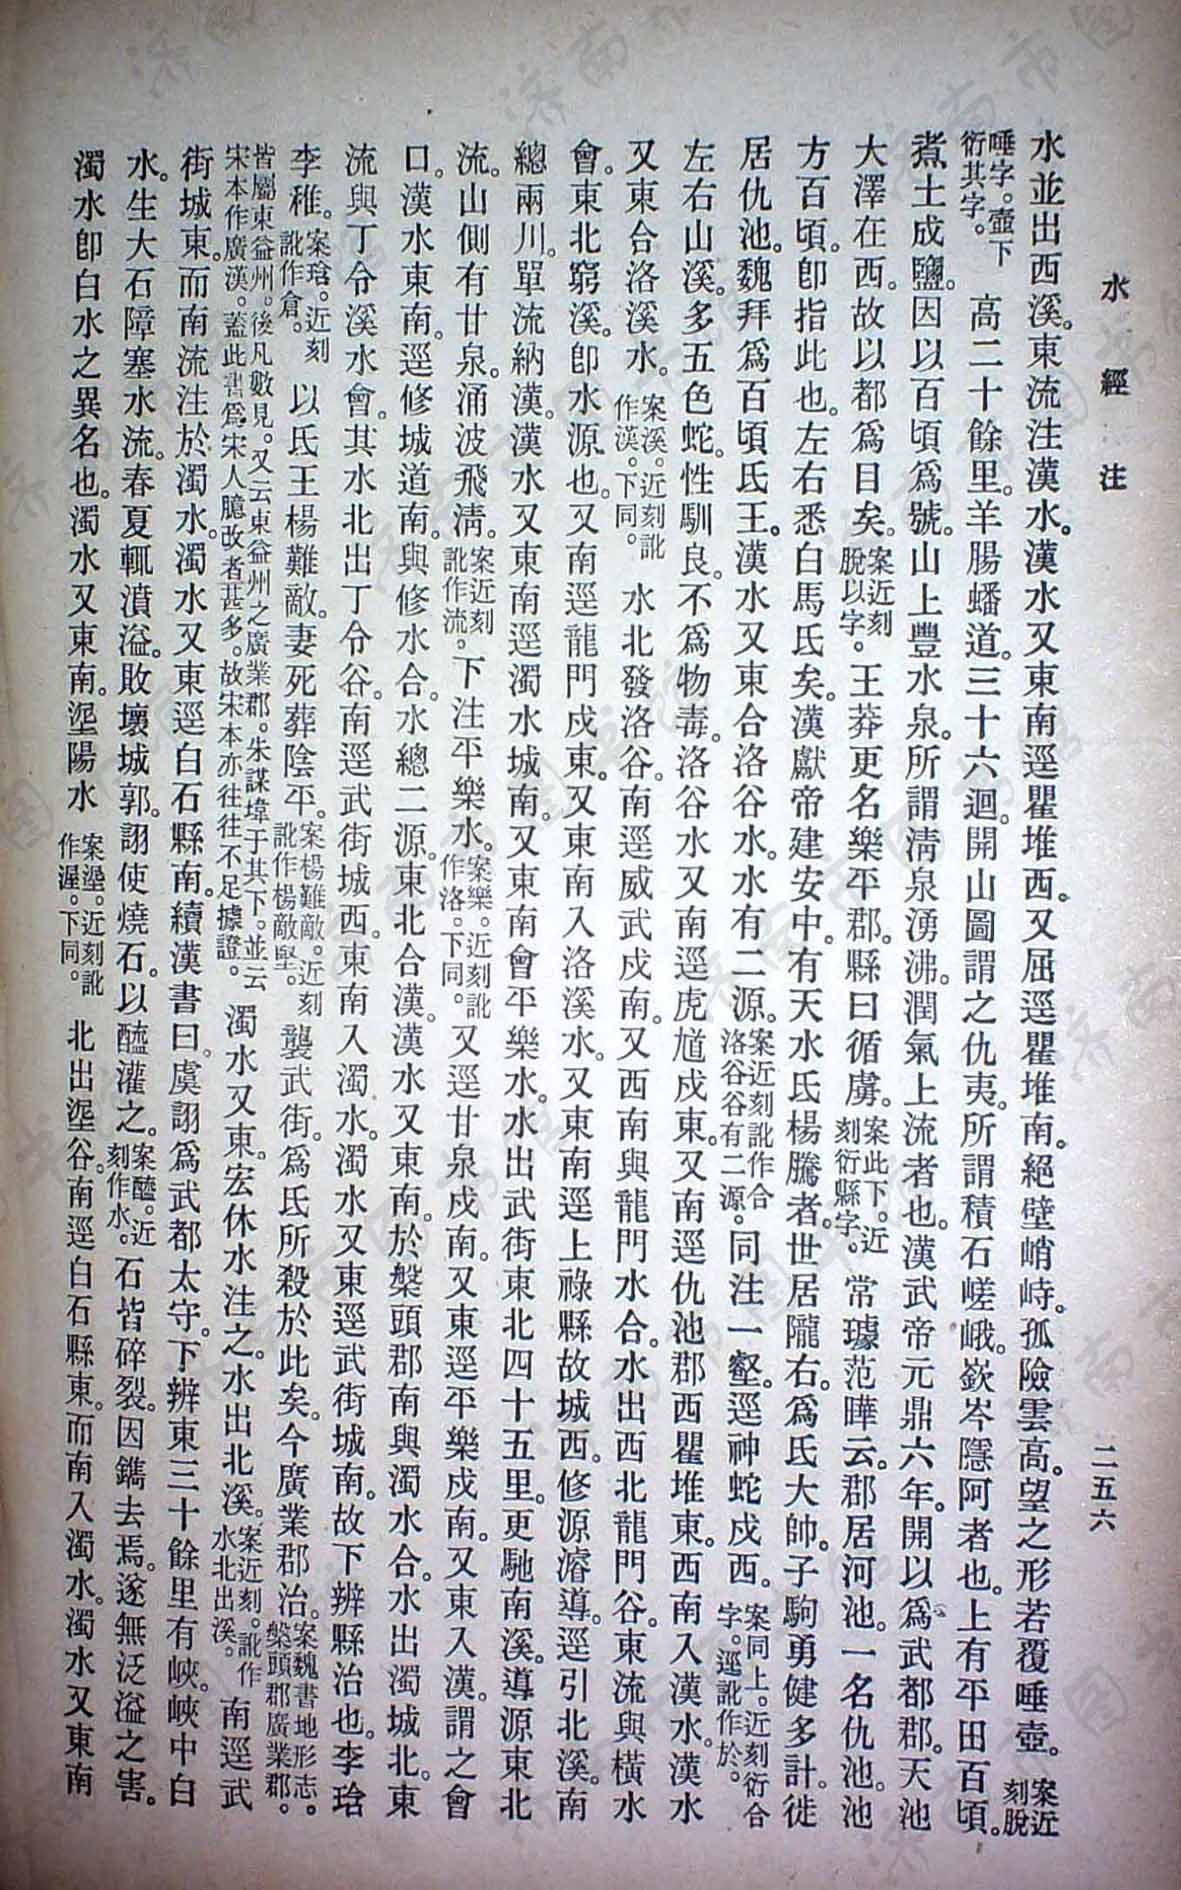 水經注
二五六
水並出西溪。東流注漢水。漢水又東南逕瞿堆西。又屈逕瞿堆南。絕壁峭峙。孤險雲高。望之形若覆唾壺。案近刻脫
唾字。壺下衍其字。高二十餘里。羊腸蟠道。三十六迴。開山圖謂之仇夷。所謂積石嵯峨。嶔岑隱阿者也。上有平田百頃。
煮土成鹽。因以百頃爲號。山上豐水泉。所謂清泉湧沸。潤氣上流者也。漢武帝元鼎六年。開以爲武都郡。天池
大澤在西。故以都爲目矣。案近刻脫以字。王莽更名樂平郡。縣曰循虜。案此下。近刻衍縣字。常璩范曄云。郡居河池。一名仇池。池
方百頃。卽指此也。左右悉白馬氐矣。漢獻帝建安中。有天水氐楊騰者。世居隴右。爲氐大帥。子駒勇健多計。徙
居仇池。魏拜爲百頃氐王。漢水又東合洛谷水。水有二源。案近刻訛作合洛谷谷有二源。同注一壑。逕神蛇戍西。案同上。近刻衍合字。逕訛作於。
左右山溪。多五色蛇。性馴良。不爲物毒。洛谷水又南逕虎馗戍東。又南逕仇池郡西瞿堆東。西南入漢水。漢水
又東合洛溪水。案溪。近刻訛作漢。下同。水北發洛谷。南逕威武戍南。又西南與龍門水合。水出西北龍門谷。東流與橫水
會。東北窮溪。卽水源也。又南逕龍門戍東。又東南入洛溪水。又東南逕上祿縣故城西。修源濬導。逕引北溪。南
總兩川。單流納漢。漢水又東南逕濁水城南。又東南會平樂水。水出武街東北四十五里。更馳南溪。導源東北
流。山側有甘泉。涌波飛清。案近刻訛作流。下注平樂水。案樂。近刻訛作洛。下同。又逕甘泉戍南。又東逕平樂戍南。又東入漢。謂之會
口。漢水東南。逕修城道南。與修水合。水總二源。東北合漢。漢水又東南。於槃頭郡南與濁水合。水出濁城北。東
流與丁令溪水會。其水北出丁令谷。南逕武街城西。東南入濁水。濁水又東逕武街城南。故下辨縣治也。李琀
李稚。案琀。近刻訛作倉。以氐王楊難敵。妻死葬陰平。案楊難敵。近刻訛作楊敵堅。襲武街。爲氐所殺於此矣。今廣業郡治。案魏書地形志。槃頭郡廣業郡。
皆屬東益州。後凡數見。又云東益州之廣業郡。朱謀㙔于其下。並云宋本作廣漢。蓋此書爲宋人臆改者甚多。故宋本亦往往不足據證。濁水又東。宏休水注之。水出北溪。案近刻。訛作水北出溪。南逕武
街城東。而南流注於濁水。濁水又東逕白石縣南。續漢書曰。虞詡爲武都太守。下辨東三十餘里有峽。峽中白
水。生大石障塞水流。春夏輒濆溢。敗壞城郭。詡使燒石。以醯灌之。案醯。近刻作水。石皆碎裂。因鐫去焉。遂無泛溢之害。
濁水卽白水之異名也。濁水又東南。埿陽水案埿。近刻訛作渥。下同。北出埿谷。南逕白石縣東。而南入濁水。濁水又東南